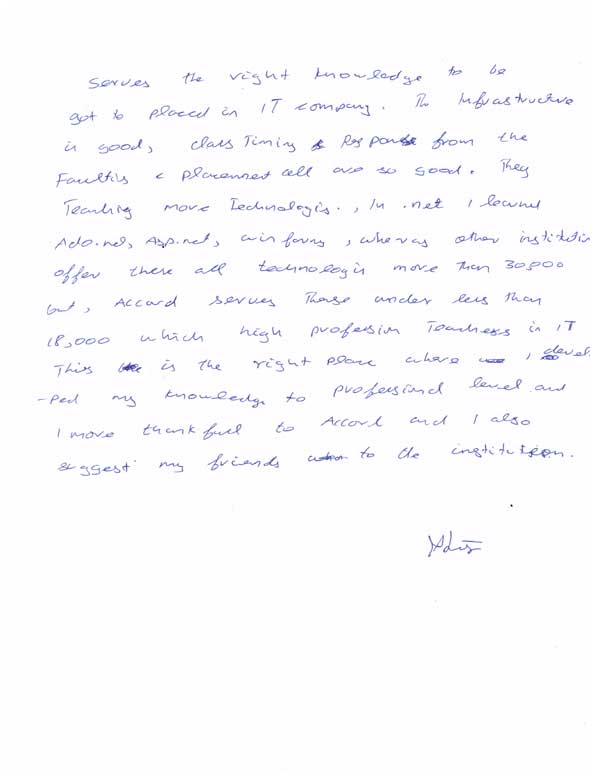 Serves the right knowledge to be
got to placed in IT company. The Infrastructure
is good, class Timing & Response from the
Faculties & placement cell are so good. They
Teaching more Technologis., In .net I learned
Ado.net, Asp.net, win forms, wheras other institution
offer these all technologis more than 30,000
but, Accord serves Those under less than
18,000 which high profession Teachers in IT
This is the right place where I devel
-ped my knowledge to professional level and
I move thankfull to Accord and I also
suggest my friends to the institution.